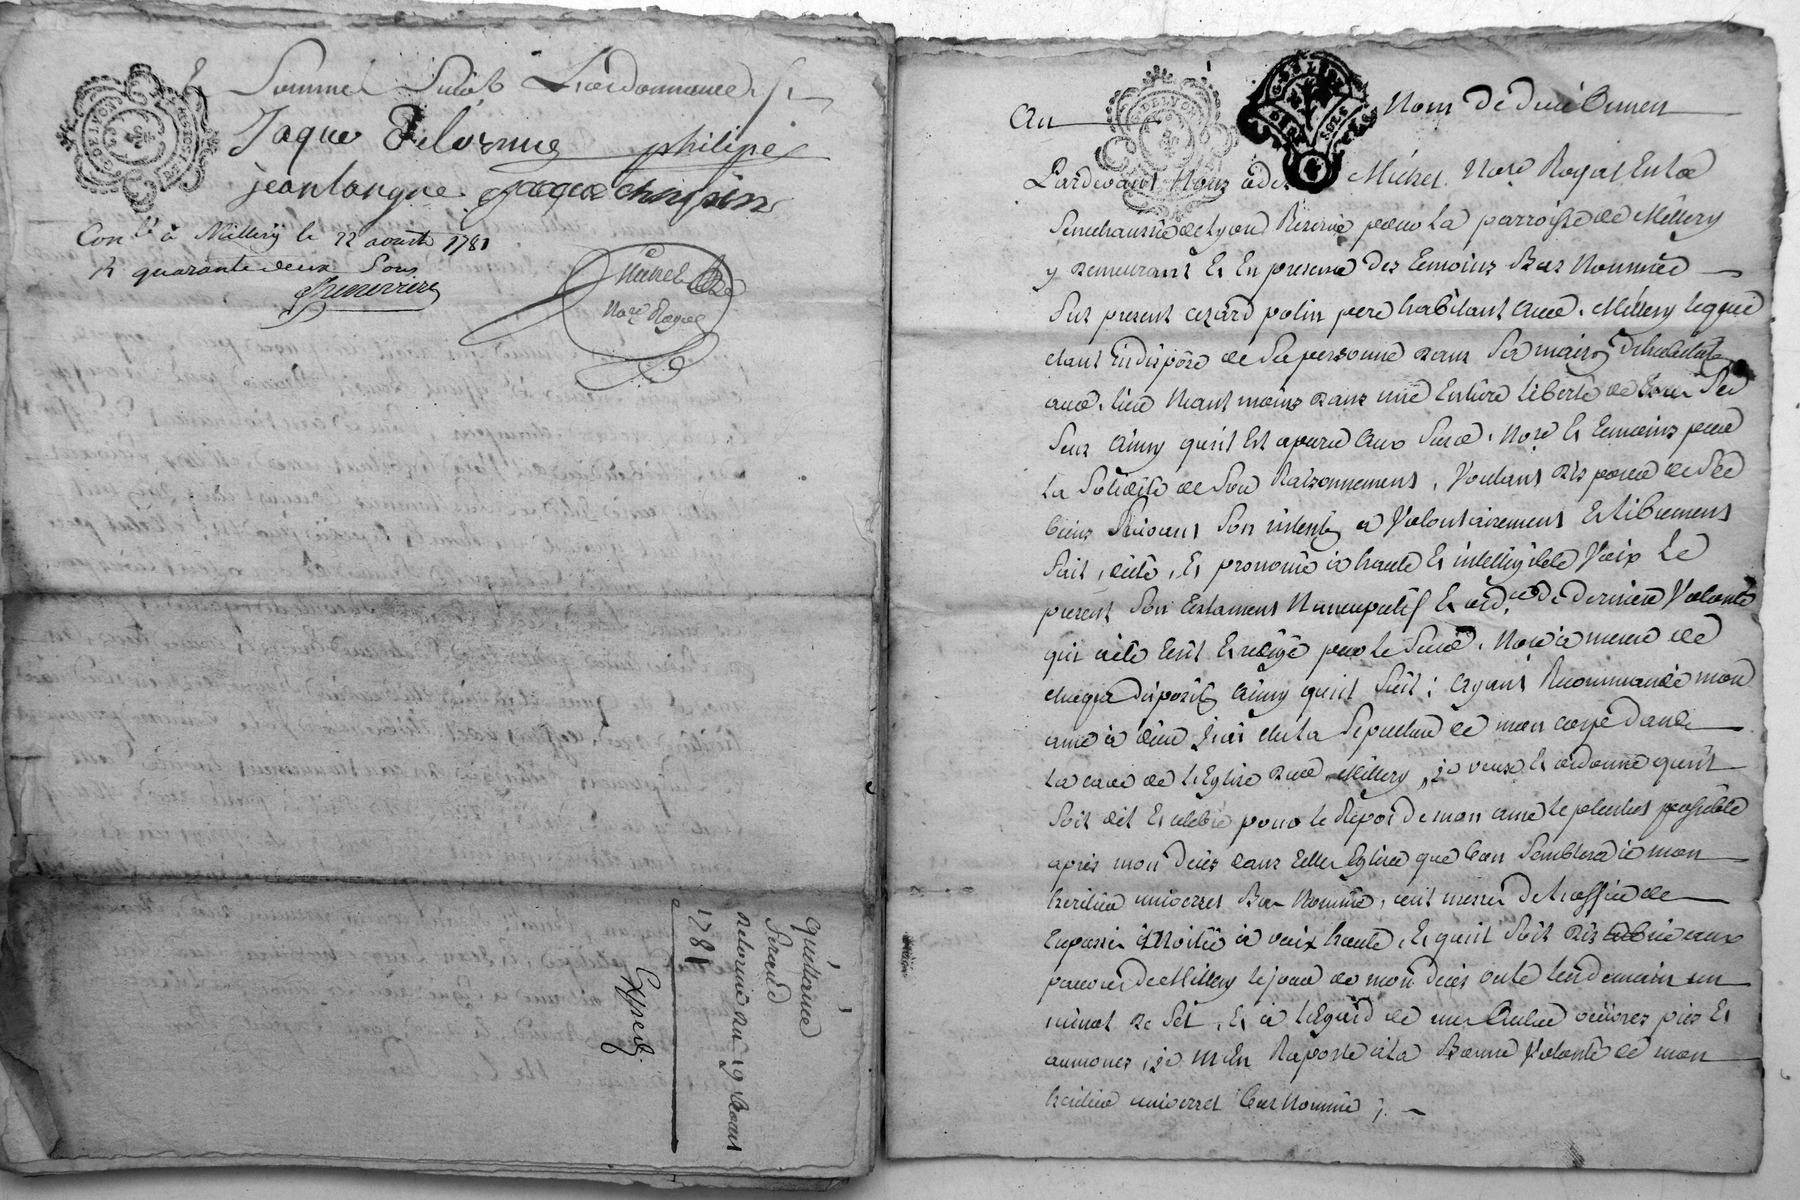 Sommés Suivt Lordonnance
Jaque Delorme philipe
jean langue jaque chapin
Con.lé à Millery le 22 aoust 1781
R quarante deux Sous
Michel
No.re Royal
quittance
Giraud
Delorme du 19 Aout
1781
Expedi.
Au Nom de dieu Amen
Pardevant Nous Michel No.re Royal En la
Senechaussée de Lyon Reservé pour La parroisse de Millery
y demeurant Et En presence des temoins Bas Nommés
fut present cezard polin pere habitant aud. Millery lequel
etant indispose de Sa personne dans Sa maison d'habitation
aud. lieu Neantmoins dans une Entiere liberté de tous Ses
Sens Ainsy quil Est aparu Aux Susd. No.re Et temoins par
La Solidité de Son Raisonnement, Voulant disposer de Ses
biens Suivant Son intention a Volontairement Et librement
fait, dicté, Et prononcé à haute Et intelligible Voix Le
present Son testament Nuncupatif Et ord.ce de derniere Volonté
qui a eté Ecrit Et redigé par le Susd. No.re à mesure de
chaque disposition Ainsy quil Suit : Ayant Recommandé mon
ame à dieu j'ai elu La Sepulture de mon corps dans
La cave de L'Eglise dud. Millery, je veux Et ordonne qu'il
Soit dit Et celebré pour le Repos de mon ame le plustot possible
après mon deces dans telles Eglises que bon Semblera à mon
heritier universel Bas Nommé, cent messes de l'office de
à voix haute, Et qu'il Soit
pauvres de Millery le jour de mon deces ou le lendemain un
minot de Sel, Et à l'Egard de mes Autres oeuvres pies Et
aumones, je m'En Raporte à la Bonne Volonté de mon
heritier universel bas Nommé ;